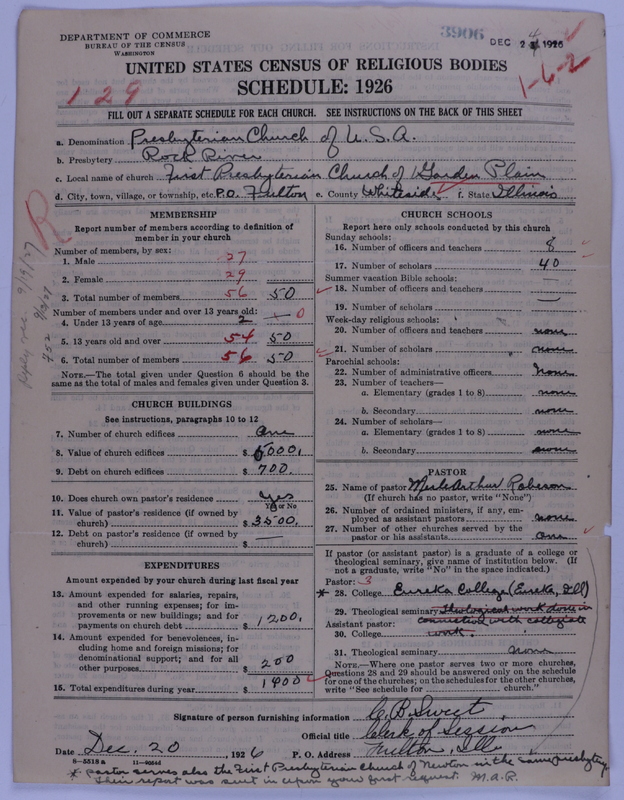 DEPARTMENT OF COMMERCE
BUREAU OF THE CENSUS
WASHINGTON
3906
DEC 24 1926
UNITED STATES CENSUS OF RELIGIOUS BODIES
SCHEDULE: 1926
1 29
1-6-2
FILL OUT A SEPARATE SCHEDULE FOR EACH CHURCH. SEE INSTRUCTIONS ON THE BACK OF THIS SHEET
a. Denomination Presbyterian Church of U.S.A.
b. Presbytery Rock River
c. Local name of church First Presbyterian Church of Garden Plain
d. City, town, village, or township, etc. P.O. Fulton e. County Whiteside f. State Illinois
MEMBERSHIP
Report number of members according to definition of member in your church
Number of members, by sex:
1. Male 27
2. Female 29
3. Total number of members 56 50
Number of members under and over 13 years old:
4. Under 13 years of age 2 — 0
5. 13 years old and over 54 50
6. Total number of members 56 50
NOTE.—The total given under Question 6 should be the same as the total of males and females given under Question 3.
CHURCH BUILDINGS
See instructions, paragraphs 10 to 12
7. Number of church edifices One
8. Value of church edifices $ 5000.
9. Debt on church edifices $ 700.
10. Does church own pastor's residence Yes
Yes or No
11. Value of pastor's residence (if owned by church) $ 3500.
12. Debt on pastor's residence (if owned by church) $ —
EXPENDITURES
Amount expended by your church during last fiscal year
13. Amount expended for salaries, repairs, and other running expenses; for improvements or new buildings; and for payments on church debt $ 1200.
14. Amount expended for benevolences, including home and foreign missions; for denominational support; and for all other purposes $ 200
15. Total expenditures during year $ 1400
CHURCH SCHOOLS
Report here only schools conducted by this church
Sunday schools:
16. Number of officers and teachers 8
17. Number of scholars 40
Summer vacation Bible schools:
18. Number of officers and teachers —
19. Number of scholars —
Week-day religious schools:
20. Number of officers and teachers none
21. Number of scholars none
Parochial schools:
22. Number of administrative officers None
23. Number of teachers—
a. Elementary (grades 1 to 8) none
b. Secondary none
24. Number of scholars—
a. Elementary (grades 1 to 8) none
b. Secondary none
PASTOR
25. Name of pastor Merle Arthur Roberson
(If church has no pastor, write "None")
26. Number of ordained ministers, if any, employed as assistant pastors none
27. Number of other churches served by the pastor or his assistants one
If pastor (or assistant pastor) is a graduate of a college or theological seminary, give name of institution below. (If not a graduate, write "No" in the space indicated.)
Pastor: 3
* 28. College Eureka College (Eureka, Ill)
29. Theological seminary Theological work done in
Assistant pastor: connection with collegiate
30. College work.
31. Theological seminary none
NOTE.—Where one pastor serves two or more churches, Questions 28 and 29 should be answered only on the schedule for one of the churches; on the schedules for the other churches, write "See schedule for ____ church."
Signature of person furnishing information C. B. Sweet
Official title Clerk of Session
Date Dec. 20, 1926 P. O. Address Fulton, Ill.
8—5518 a
* Pastor serves also the First Presbyterian Church of Newton in the same presbytery
Their report was sent in upon your first request. M.A.R.